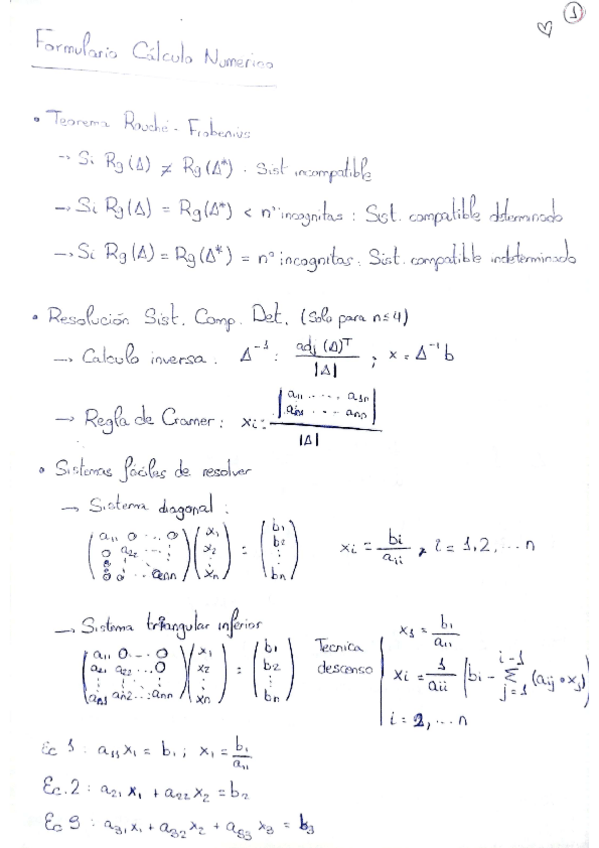 1
Formulario Cálculo Numerico
• Teorema Rouché - Frobenius
→ Si Rg(A) ≠ Rg(A*) . Sist incompatible
→ Si Rg(A) = Rg(A*) < nº incognitas : Sist. compatible determinado
→ Si Rg(A) = Rg(A*) = nº incognitas . Sist. compatible indeterminado
• Resolución Sist. Comp. Det. (Solo para n≤4)
→ Calculo inversa : A⁻¹ : adj (A)ᵀ / |A| ; x = A⁻¹ b
→ Regla de Cramer : xi = |a11 ... a1n / an1 ... ann| / |A|
• Sistemas fáciles de resolver
→ Sistema diagonal :
(a11 0 ... 0 / 0 a22 ... : / 0 0 ... ann) (x1 / x2 / : / xn) = (b1 / b2 / : / bn)   xi = bi / aii , i = 1,2, ... n
→ Sistema triangular inferior
(a11 0 ... 0 / a21 a22 ... 0 / : / an1 an2 ... ann) (x1 / x2 / : / xn) = (b1 / b2 / : / bn)   Tecnica descenso
x1 = b1 / a11
xi = 1 / aii (bi - Σ j=1 i-1 (aij · xj)
i = 2, ... n
Ec 1 : a11 x1 = b1 ; x1 = b1 / a11
Ec. 2 : a21 x1 + a22 x2 = b2
Ec 3 : a31 x1 + a32 x2 + a33 x3 = b3